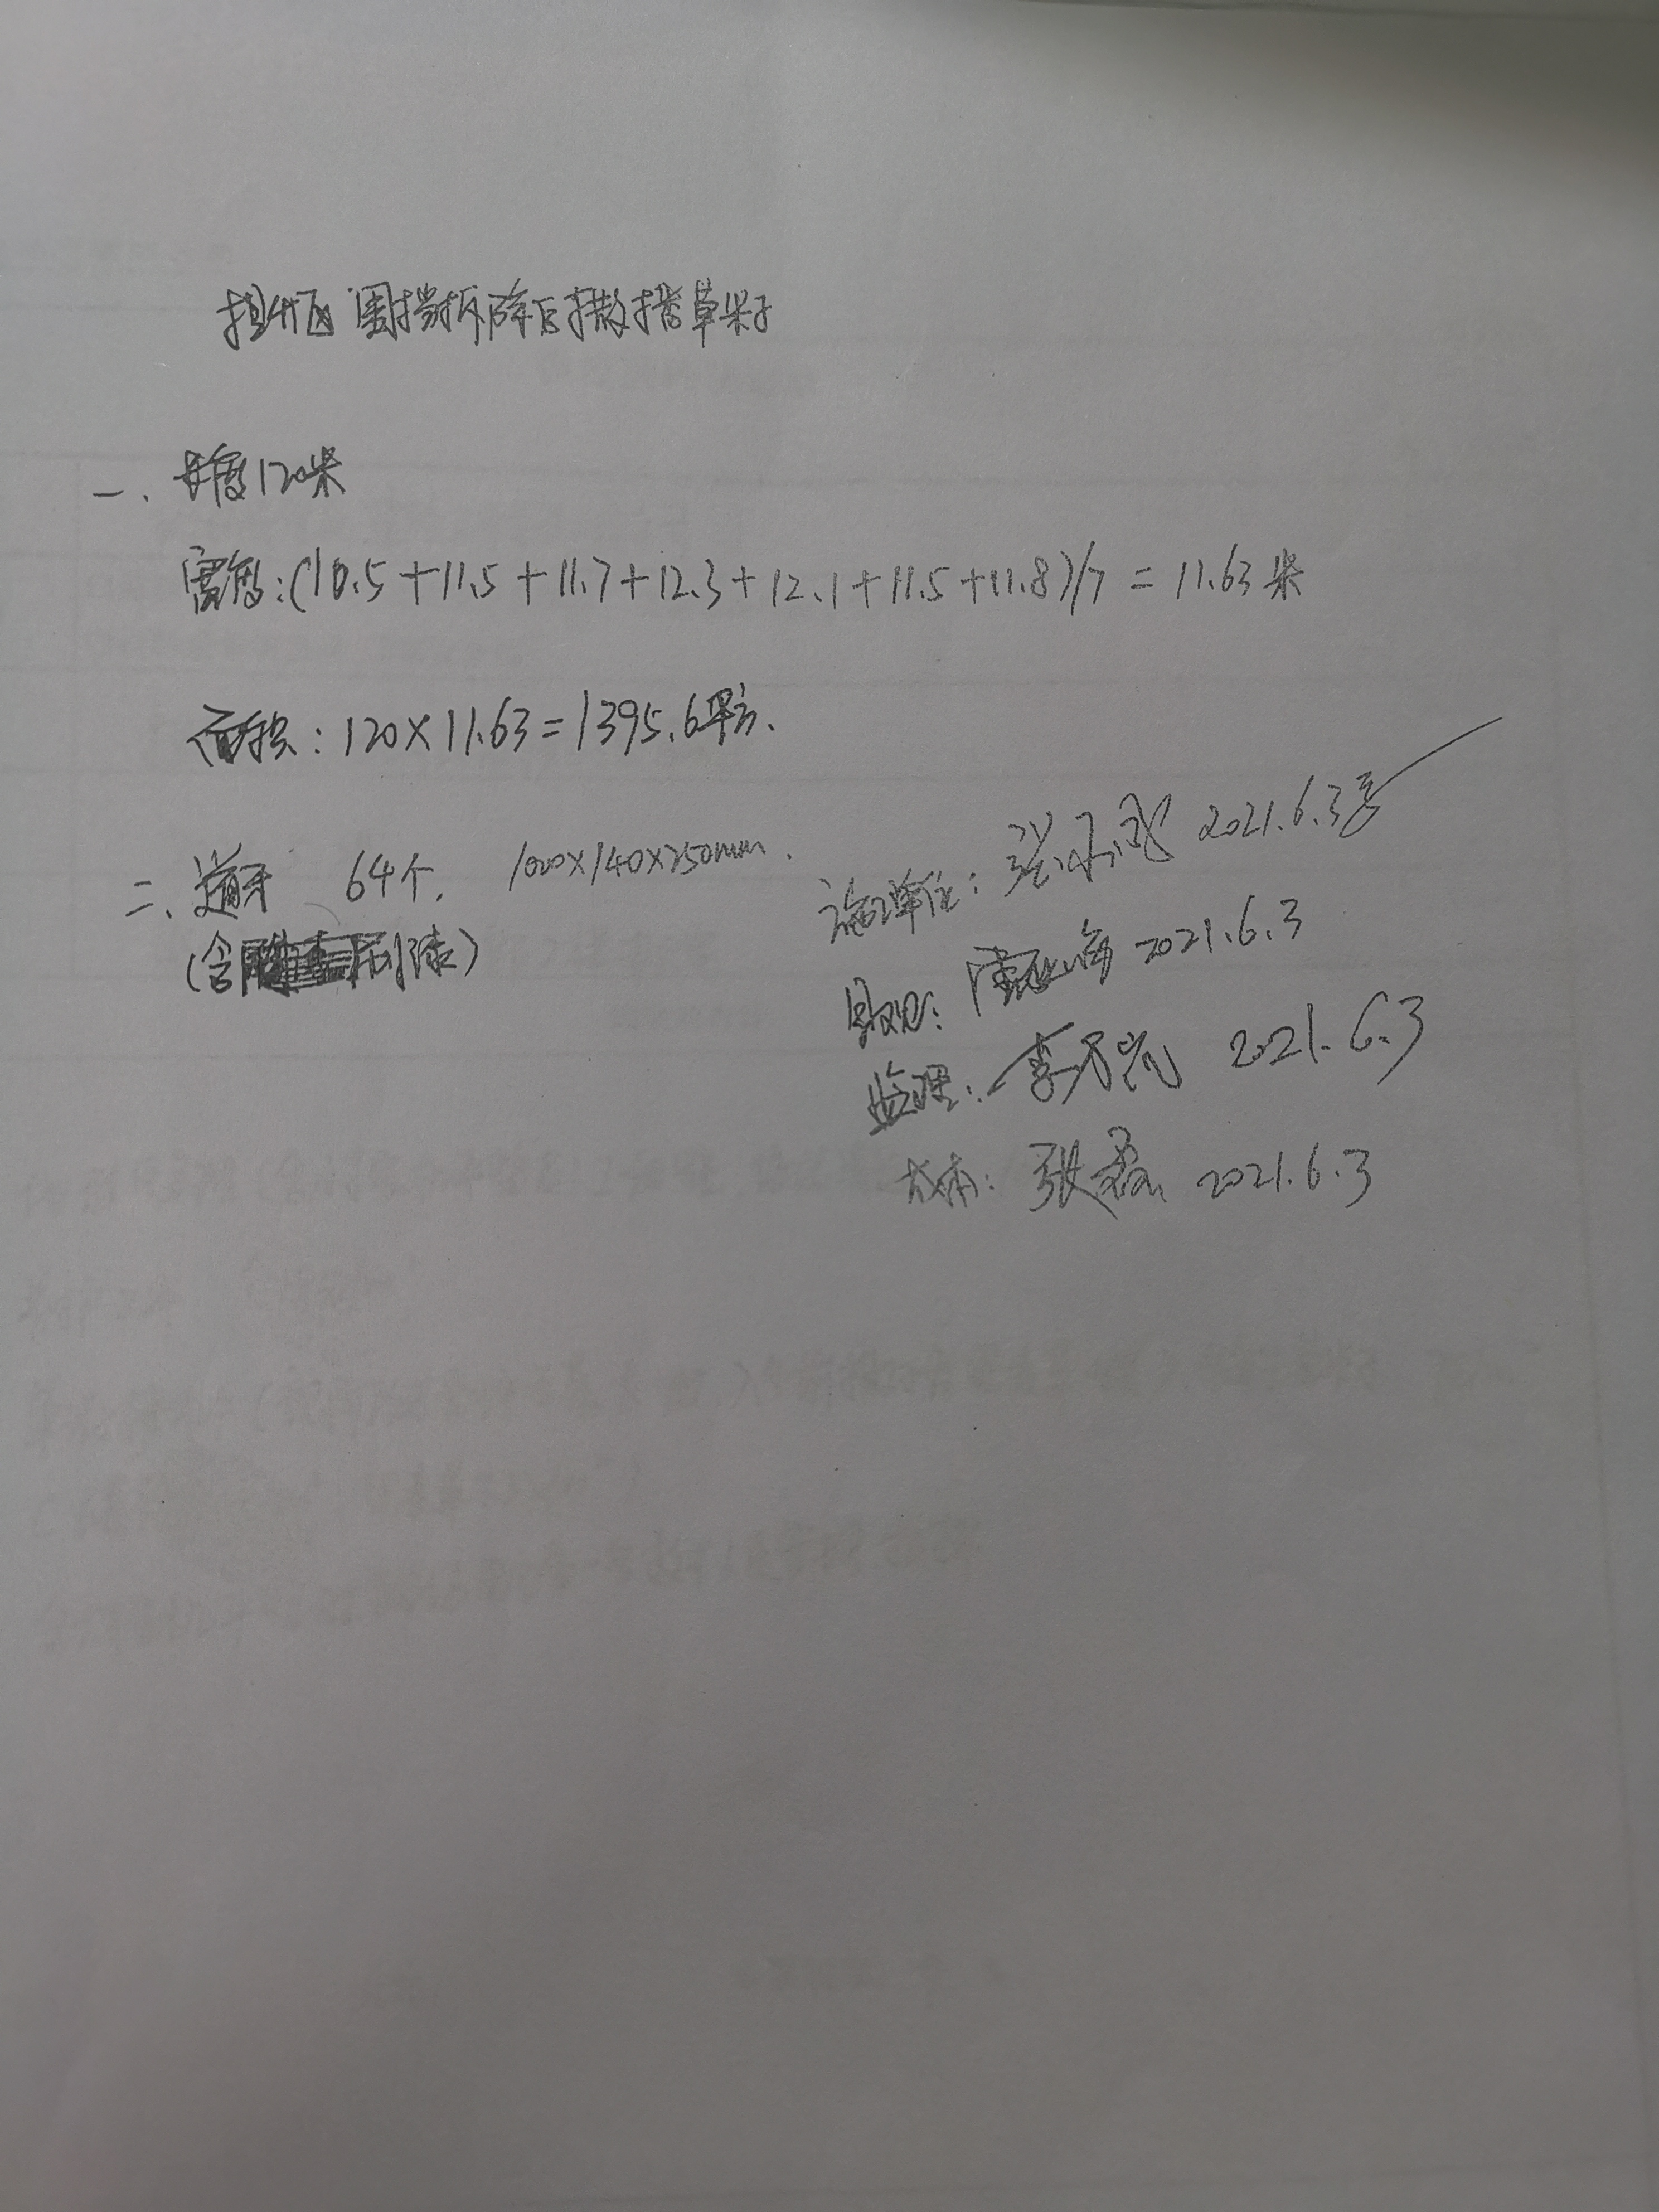 围挡拆除后撒播草籽
一、长度120米
宽度:(10.5+11.5+11.7+12.3+12.1+11.5+11.8)/7=11.63米
面积:120×11.63=1395.6平方.
二、道牙 64个. 1000×140×250mm.
(含刷漆)
施工单位: 2021.6.3
2021.6.3
监理: 2021.6.3
成本: 张 2021.6.3